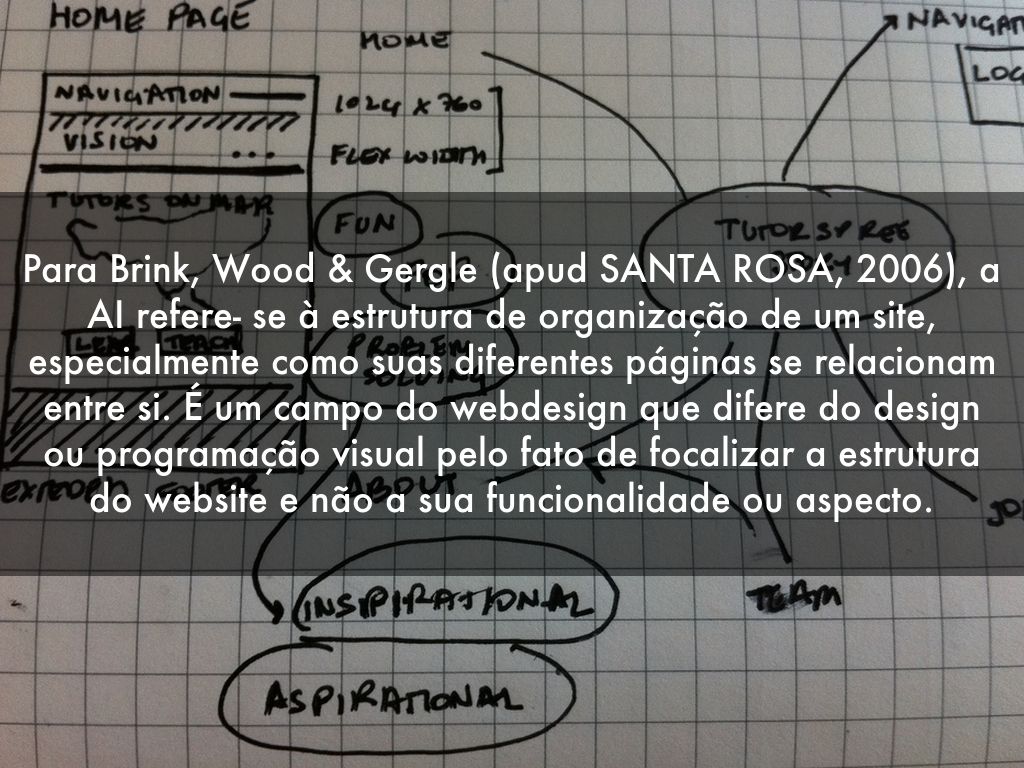 HOME PAGE
HOME
NAVIGAT
LOG
NAVIGATION
1024 x 760
VISION
FLEX WIDTH
TUTORS ON MAP
FUN
TUTORSPREE
Para Brink, Wood & Gergle (apud SANTA ROSA, 2006), a
AI refere- se à estrutura de organização de um site,
especialmente como suas diferentes páginas se relacionam
entre si. É um campo do webdesign que difere do design
ou programação visual pelo fato de focalizar a estrutura
do website e não a sua funcionalidade ou aspecto.
PROBLEM
SOLVING
ABOUT
TEAM
INSIPIRATIONAL
ASPIRATIONAL